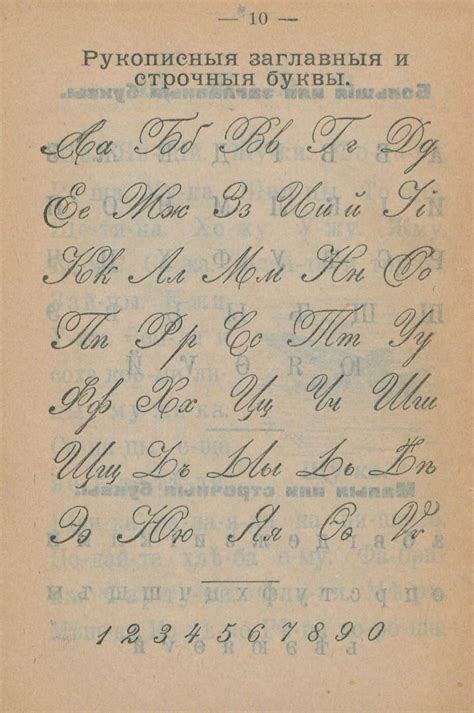 — 10 —
Рукописныя заглавныя и
строчныя буквы.
Аа Бб Вв Гг Дд
Ее Жж Зз Ии й Іі
Кк Лл Мм Нн Оо
Пп Рр Сс Тт Уу
Фф Хх Цц Чч Шш
Щщ Ъъ Ыы Ьь Ѣѣ
Ээ Юю Яя Ѳѳ Ѵѵ
1 2 3 4 5 6 7 8 9 0